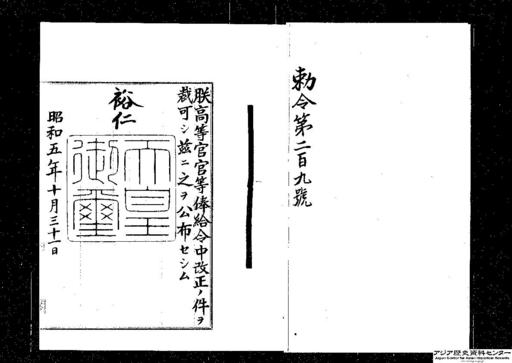 勅令第二百九號
朕高等官官等俸給令中改正ノ件ヲ
裁可シ茲ニ之ヲ公布セシム
裕仁
天皇
御璽
昭和五年十月三十一日
アジア歴史資料センター
Japan Center for Asian Historical Records